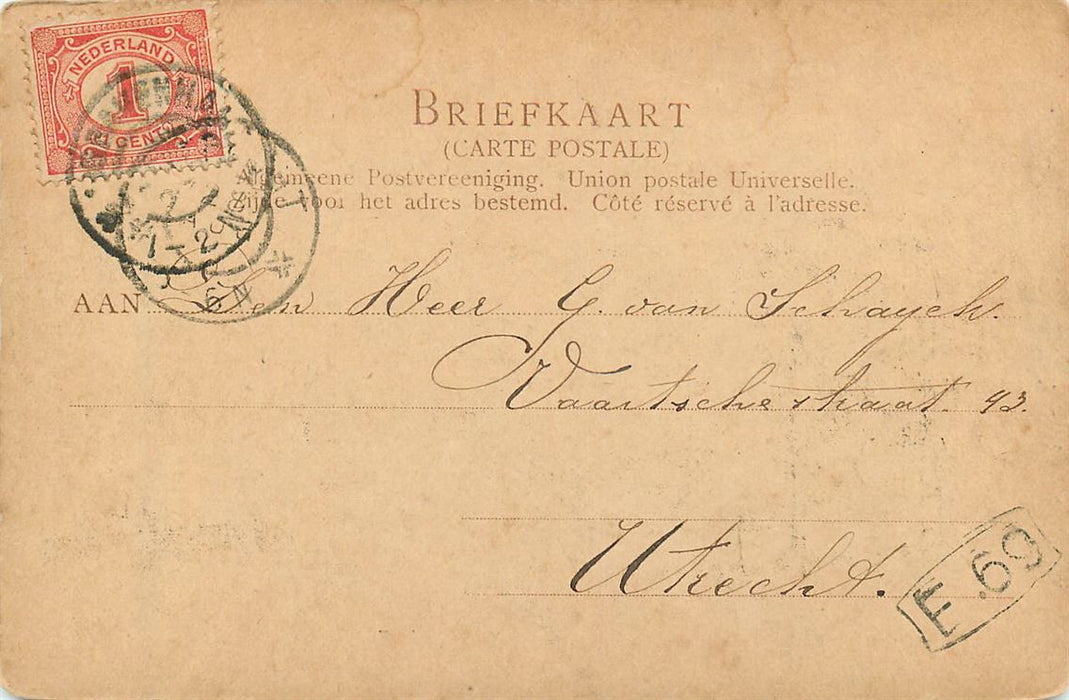 NEDERLAND
1
CENT
BRIEFKAART
(CARTE POSTALE)
Algemeene Postvereeniging. Union postale Universelle.
Zijde voor het adres bestemd. Côté réservé à l'adresse.
AAN Den Heer G. van Schayck.
Vaartschestraat. 93.
Utrecht.
E.69